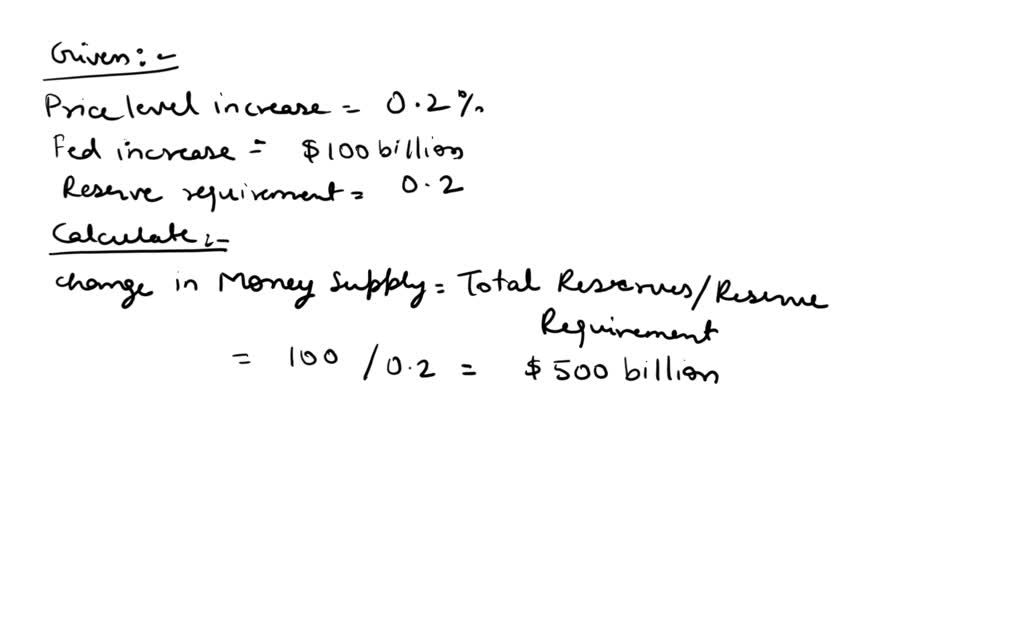 Given:-
Price level increase = 0.2%
Fed increase = $100 billion
Reserve requirement = 0.2
Calculate:-
change in Money Supply = Total Reserves/Reserve
Requirement
= 100 / 0.2 = $500 billion